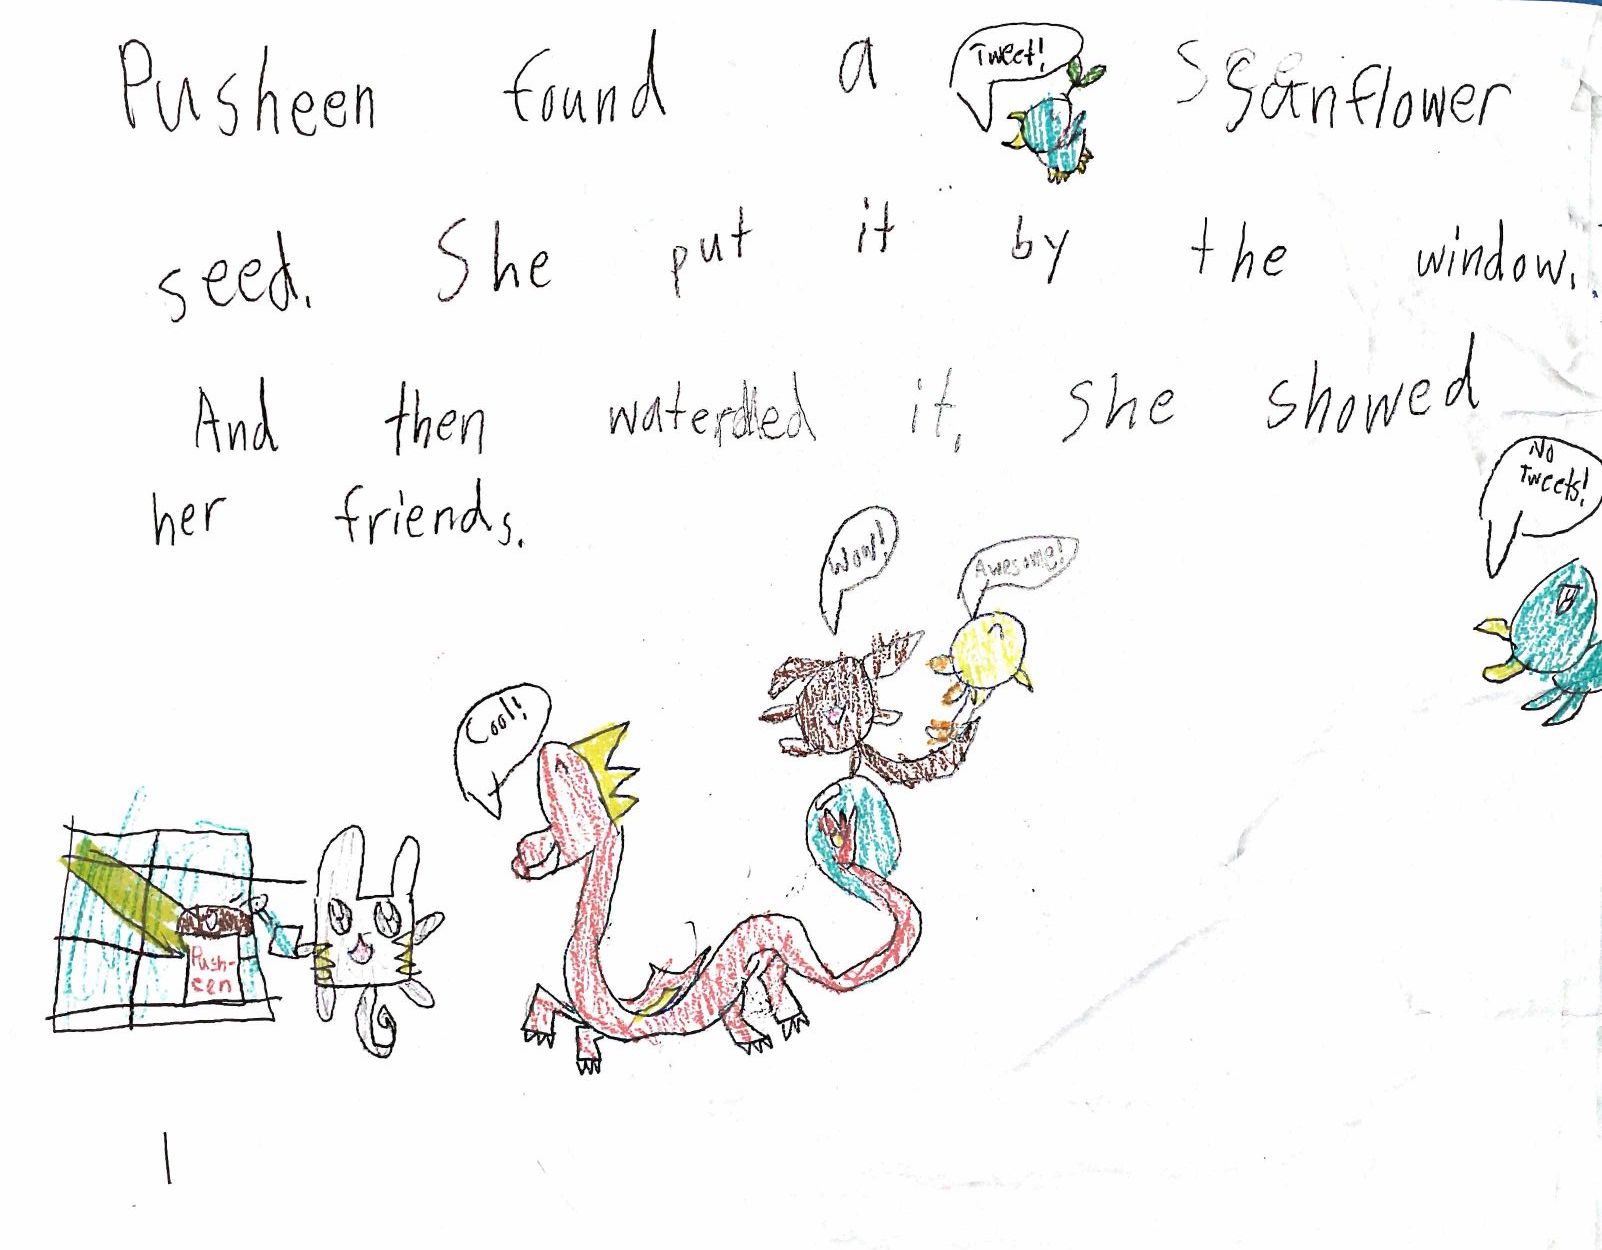 Pusheen found a sunflower
Tweet!
seed. She put it by the window.
And then waterded it. She showed
her friends.
No
Tweets!
Wow!
Awesome!
Cool!
Push-
een
1